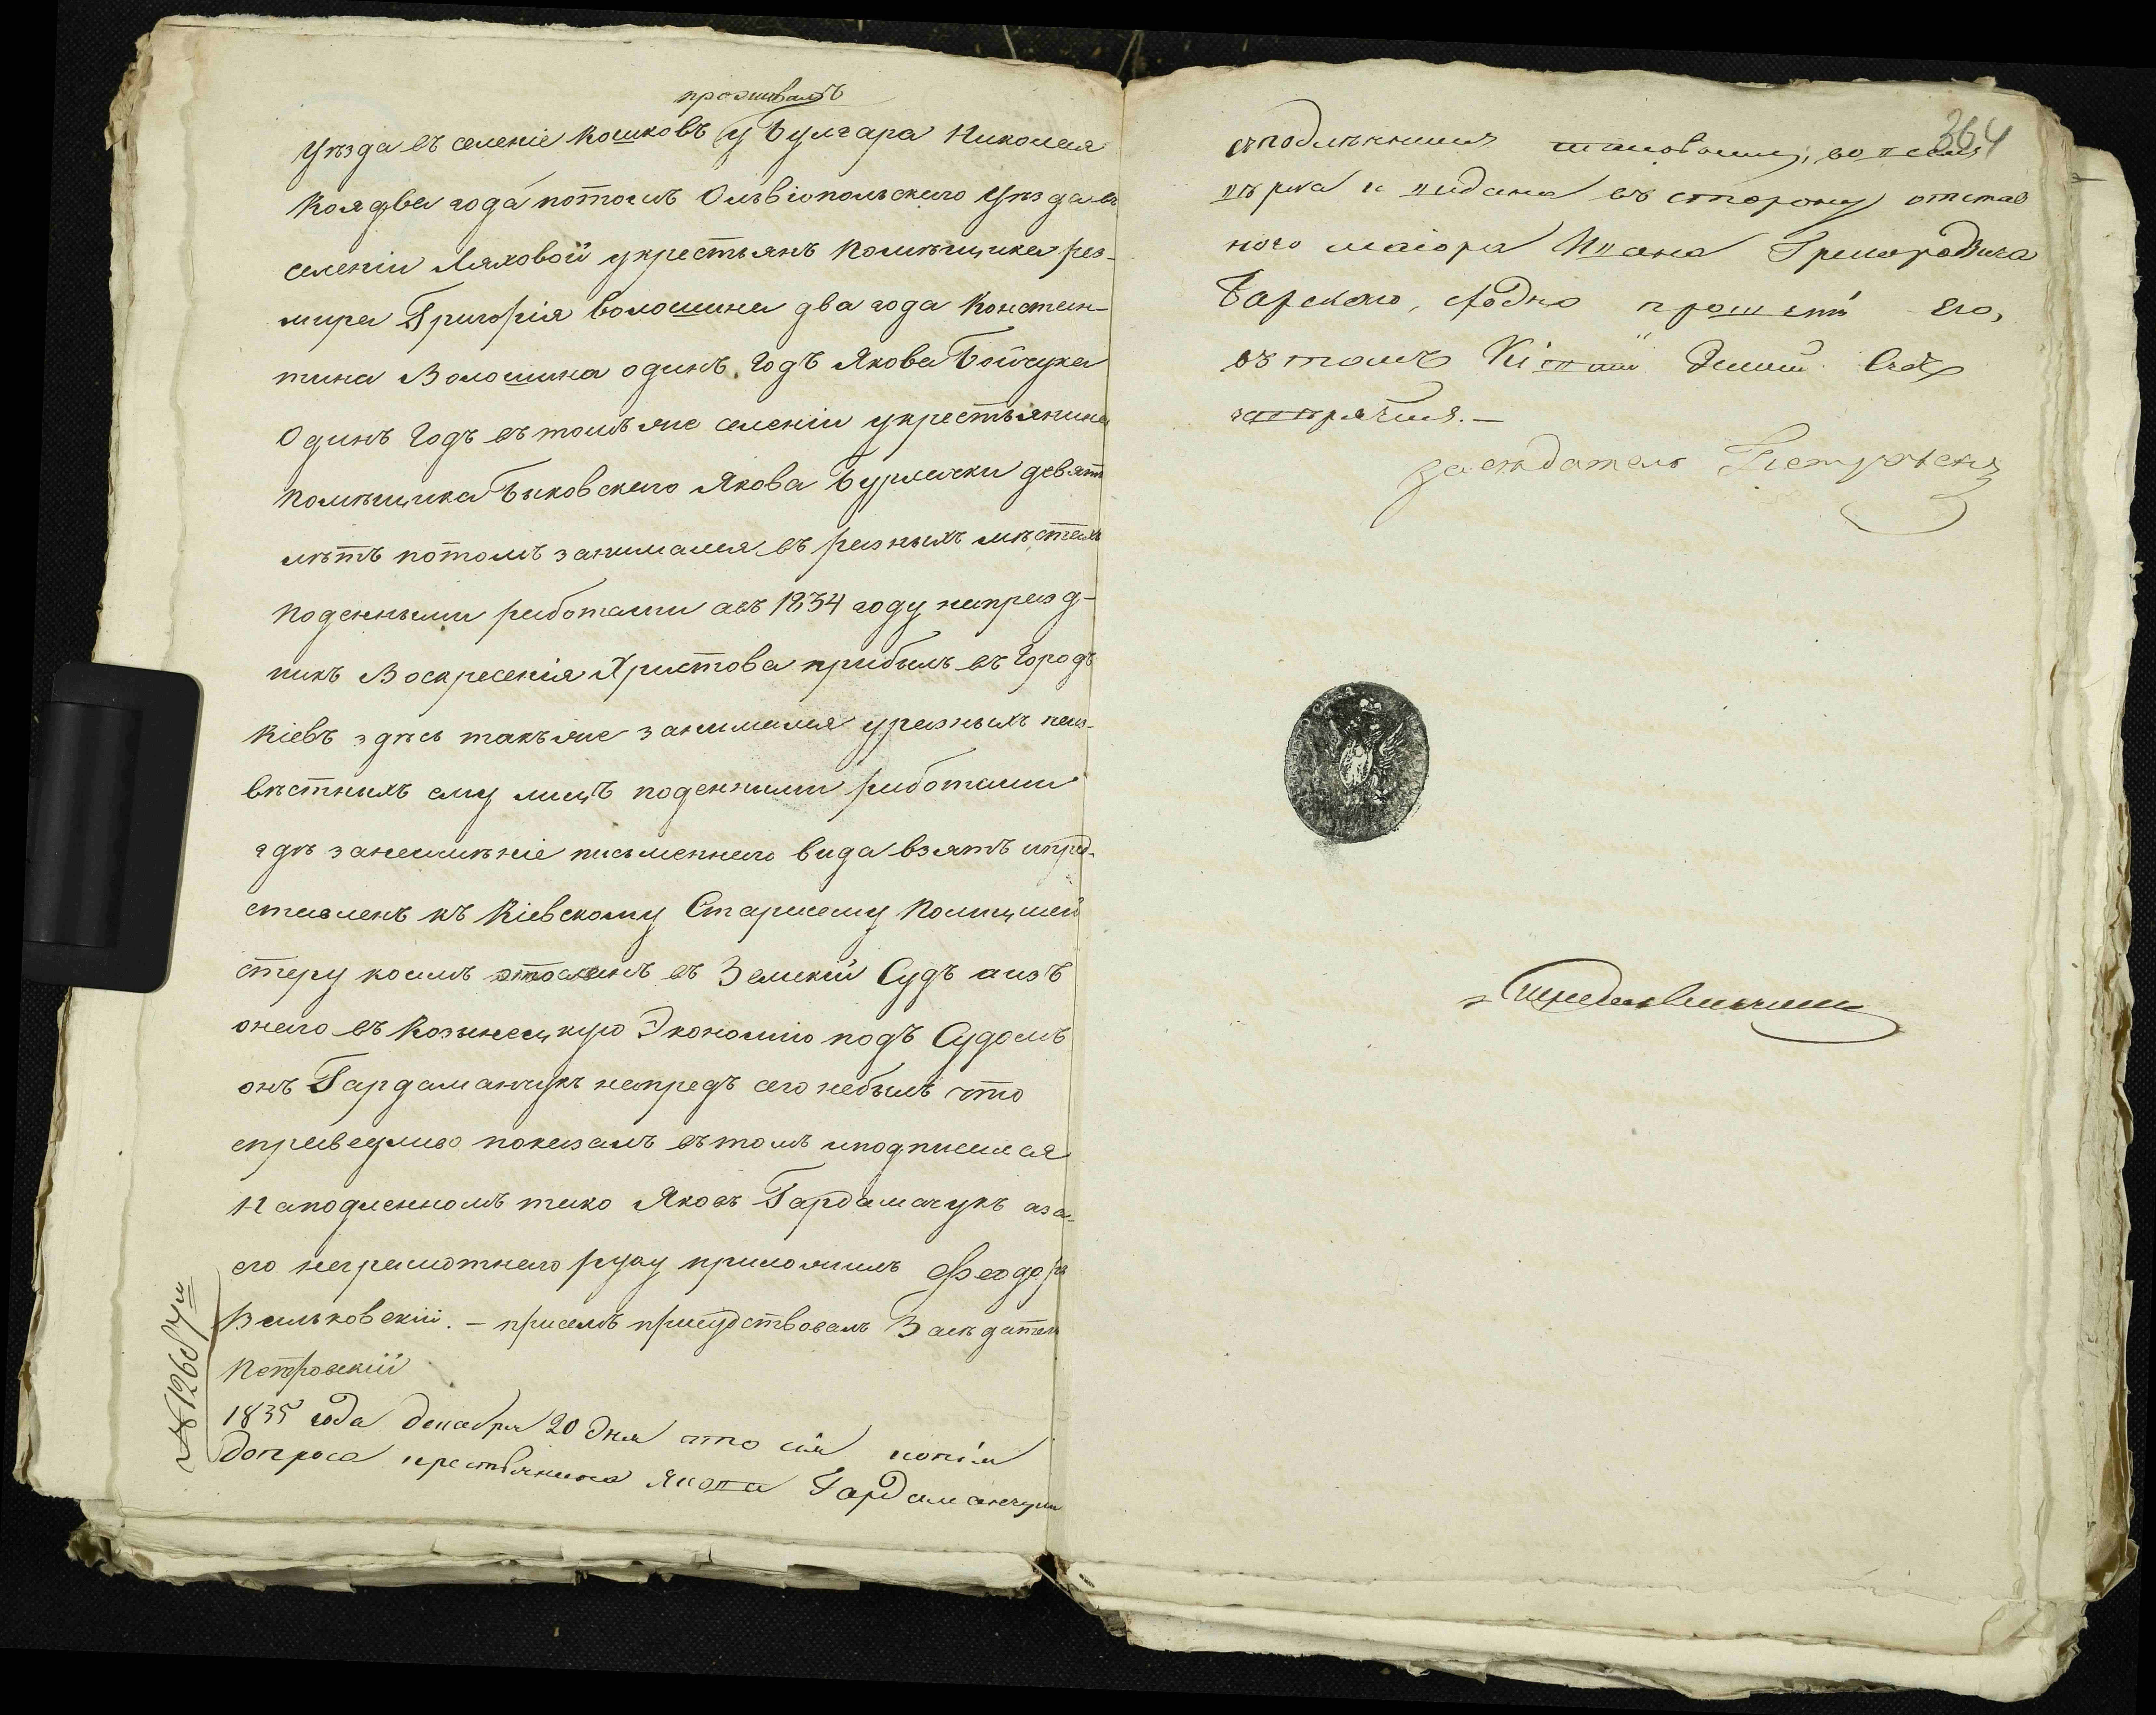 проживалъ
уѣзда въ селеніе Кошковъ у Булгара Николая
Коя два года потомъ Ольвіопольского уѣзда въ
селеніи Ляховой укрестьянъ помѣщика рез-
мира Григорія Волошина два года Констан-
тина Волошина одинъ годъ Якова Бойчука
Одинъ Годъ въ томъ же селеніи укрестьянина
помѣщика Быковского Якова Бурлачки девять
лѣтъ потомъ занимался въ разныхъ мѣстахъ
поденными работами авъ 1834 году напразд-
никъ Воскресенія Христова прибылъ въ Городъ
Кіевъ здѣсь такъже занимался уразныхъ неиз-
вѣстныхъ ему лицъ поденными работами
гдѣ занеимѣніе письменнаго вида взятъ ипред-
ставленъ къ Кіевскому Старшему Полицмей
стеру коимъ отосланъ въ Земскій Судъ аизъ
онаго въ Козинецкую Экономію подъ Судомъ
онъ Гардаманчукъ напредъ сего небылъ что
справедливо показалъ въ томъ иподписался
Наподленномъ тако Яковъ Гардамачукъ аза
его неграмотнаго руку приложилъ Феодоръ
Вильковскій. – присемъ присудствовалъ Засѣдатель
Петровскій
1835 года декабря 20 дня что сія копія
допроса крестьянина Якова Гардаманчука
№ 126
364
съподлѣннымъ
вѣрна и видана въ сторону отстав
ного маіора Ивана Григоровича
Барского, сходно прошенія его,
въ томъ Кіевскій Земскій Судъ
засѣдатель Петровскій